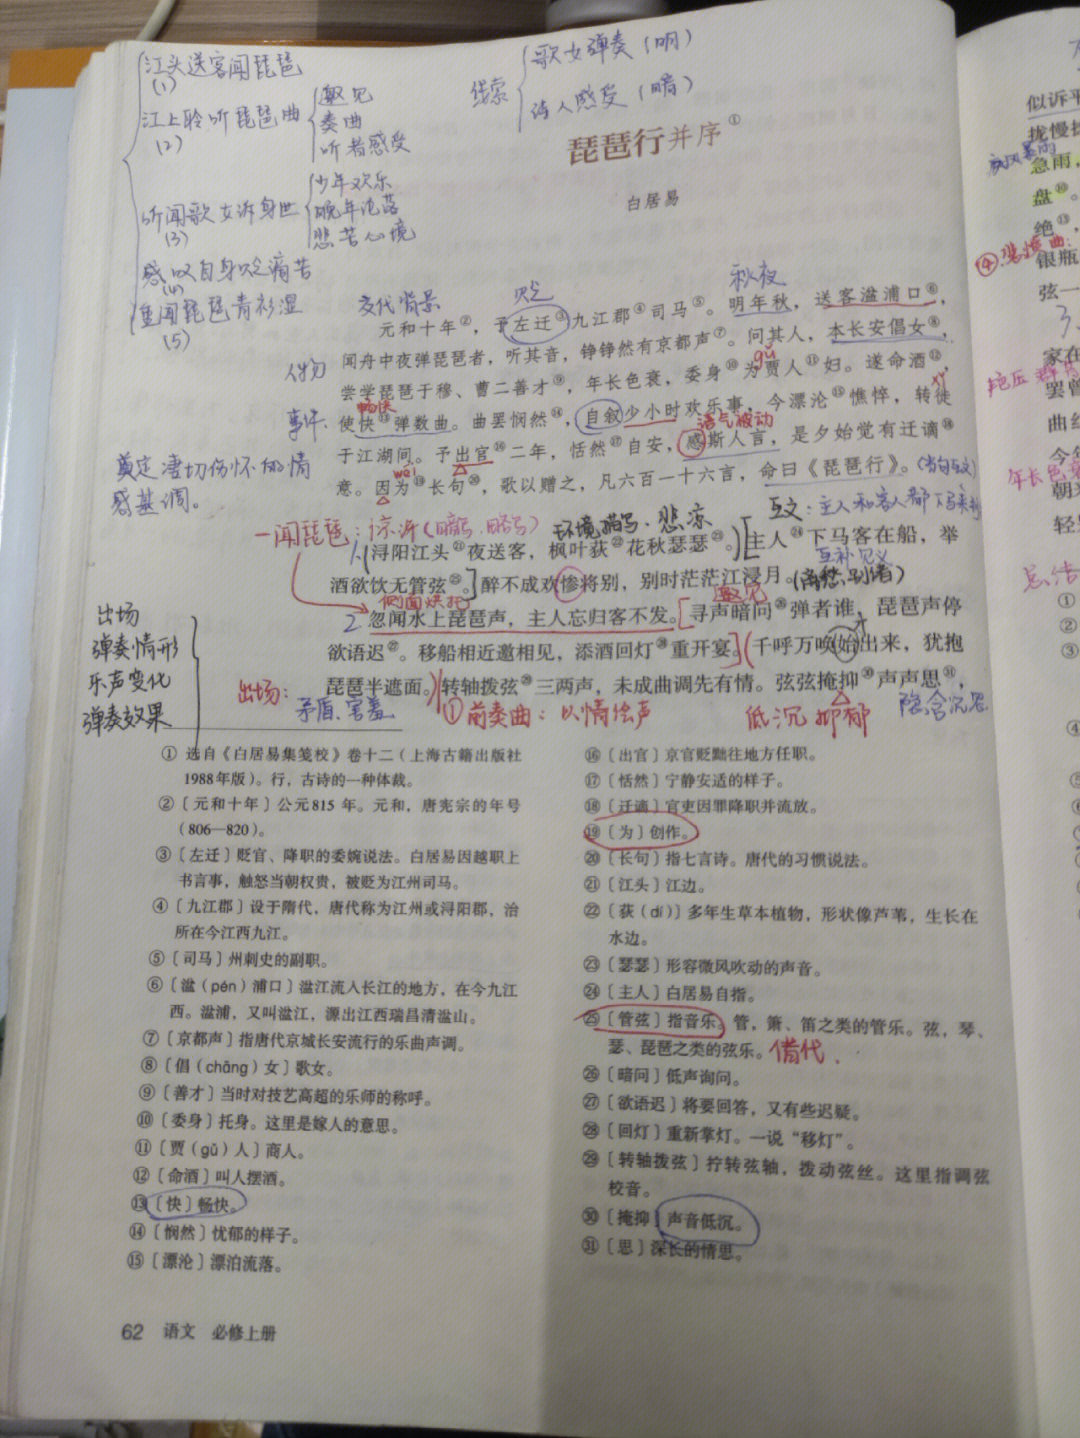 江头送客闻琵琶
(1)
江上聆听琵琶曲
(2)
邀见
奏曲
听者感受
听闻歌女诉身世
(3)
少年欢乐
晚年沦落
悲苦心境
感叹自身贬谪痛苦
(4)
重闻琵琶青衫湿
(5)
线索
歌女弹奏(明)
诗人感受(暗)
琵琶行并序①
白居易
交代背景
贬
秋夜
元和十年②，予左迁③九江郡④司马⑤。明年秋，送客湓浦口⑥，
闻舟中夜弹琵琶者，听其音，铮铮然有京都声⑦。问其人，本长安倡女⑧，
人物
gǔ
尝学琵琶于穆、曹二善才⑨，年长色衰，委身⑩为贾人⑪妇。遂命酒⑫，
畅快
xǐ
事件:
使快⑬弹数曲。曲罢悯然⑭，自叙少小时欢乐事，今漂沦⑮憔悴，转徙
语气被动
于江湖间。予出官⑯二年，恬然⑰自安，感斯人言，是夕始觉有迁谪⑱
wéi
意。因为⑲长句⑳，歌以赠之，凡六百一十六言，命曰《琵琶行》。
(当句互文)
奠定凄切伤怀的情
感基调。
一闻琵琶:
(暗写、略写)
环境描写·悲凉
互文:主人和客人都下马来到
浔阳江头㉑夜送客，枫叶荻㉒花秋瑟瑟㉓。主人㉔下马客在船，举
互补见义
酒欲饮无管弦㉕。醉不成欢惨将别，别时茫茫江浸月。
(离愁别绪)
侧面烘托
邀见
2
忽闻水上琵琶声，主人忘归客不发。寻声暗问㉖弹者谁，琵琶声停
欲语迟㉗。移船相近邀相见，添酒回灯㉘重开宴。千呼万唤始出来，犹抱
才
琵琶半遮面。转轴拨弦㉙三两声，未成曲调先有情。弦弦掩抑㉚声声思㉛，
出场
弹奏情形
乐声变化
弹奏效果
出场:
矛盾、害羞
①前奏曲:以情绘声
低沉抑郁
① 选自《白居易集笺校》卷十二（上海古籍出版社
1988年版）。行，古诗的一种体裁。
②〔元和十年〕公元815 年。元和，唐宪宗的年号
（806—820）。
③〔左迁〕贬官、降职的委婉说法。白居易因越职上
书言事，触怒当朝权贵，被贬为江州司马。
④〔九江郡〕设于隋代，唐代称为江州或浔阳郡，治
所在今江西九江。
⑤〔司马〕州刺史的副职。
⑥〔湓（pén）浦口〕湓江流入长江的地方，在今九江
西。湓浦，又叫湓江，源出江西瑞昌清湓山。
⑦〔京都声〕指唐代京城长安流行的乐曲声调。
⑧〔倡（chāng）女〕歌女。
⑨〔善才〕当时对技艺高超的乐师的称呼。
⑩〔委身〕托身。这里是嫁人的意思。
⑪〔贾（gǔ）人〕商人。
⑫〔命酒〕叫人摆酒。
⑬〔快〕畅快。
⑭〔悯然〕忧郁的样子。
⑮〔漂沦〕漂泊流落。
⑯〔出官〕京官贬黜往地方任职。
⑰〔恬然〕宁静安适的样子。
⑱〔迁谪〕官吏因罪降职并流放。
⑲〔为〕创作。
⑳〔长句〕指七言诗。唐代的习惯说法。
㉑〔江头〕江边。
㉒〔荻（dí）〕多年生草本植物，形状像芦苇，生长在
水边。
㉓〔瑟瑟〕形容微风吹动的声音。
㉔〔主人〕白居易自指。
㉕〔管弦〕指音乐。管，箫、笛之类的管乐。弦，琴、
瑟、琵琶之类的弦乐。
借代.
㉖〔暗问〕低声询问。
㉗〔欲语迟〕将要回答，又有些迟疑。
㉘〔回灯〕重新掌灯。一说“移灯”。
㉙〔转轴拨弦〕拧转弦轴，拨动弦丝。这里指调弦
校音。
㉚〔掩抑〕声音低沉。
㉛〔思〕深长的情思。
62 语文 必修上册
似诉平
急雨，
盘⑩。
绝⑬，
④
银瓶
弦一
家在
罢曾
曲终
今年
年长色衰
朝来
轻
总结
①
②
③